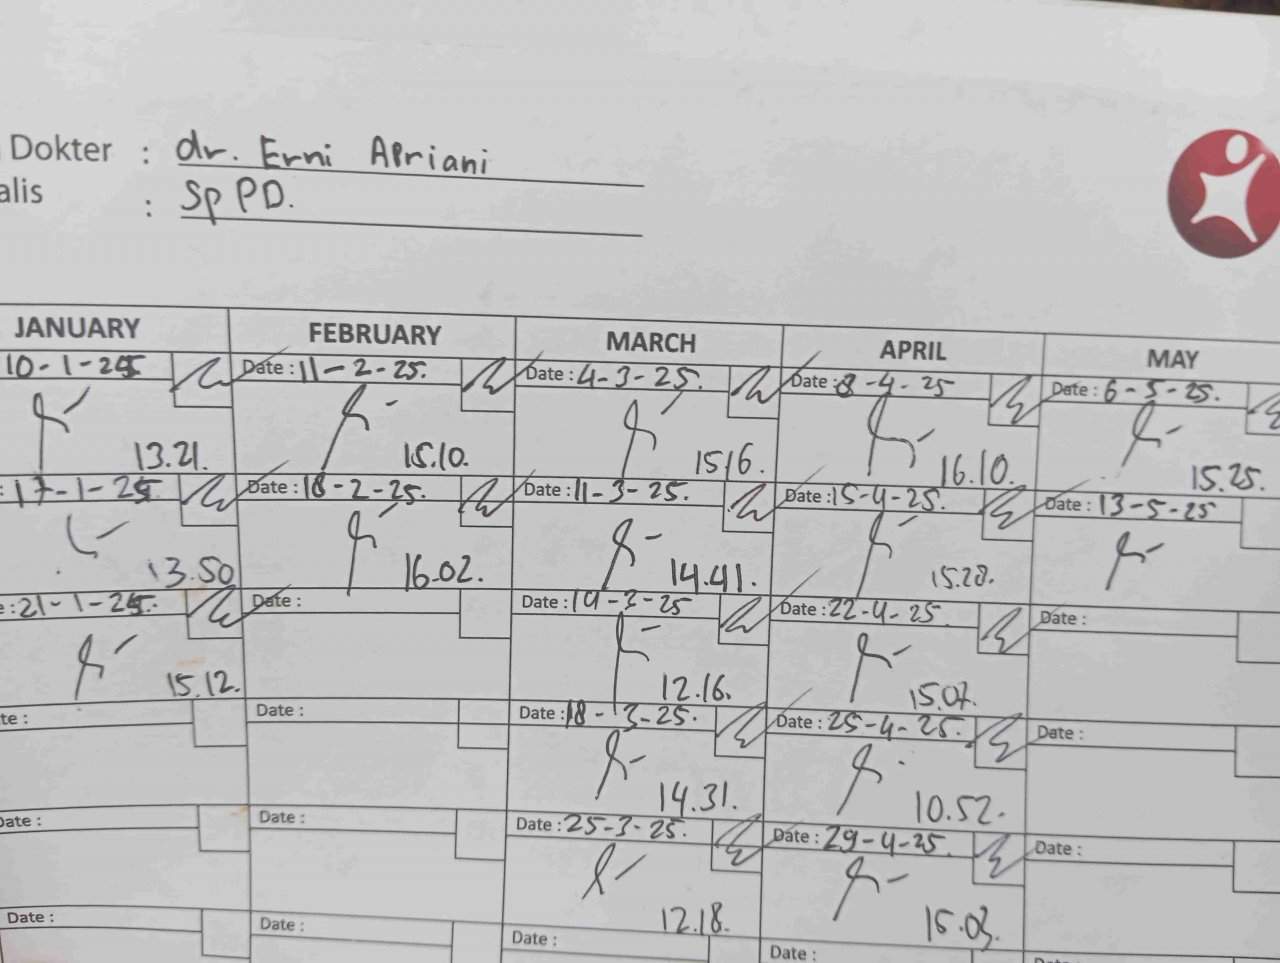 Dokter : dr. Erni Apriani
alis : Sp PD.
JANUARY FEBRUARY MARCH APRIL MAY
10-1-25 Date : 11-2-25. Date : 4-3-25. Date : 8-4-25 Date : 6-5-25.
13.21. 15.10. 15.16. 16.10. 15.25.
: 17-1-25 Date : 18-2-25. Date : 11-3-25. Date : 15-4-25. Date : 13-5-25
13.50 16.02. 14.41. 15.28.
e : 21-1-25. Date : Date : 14-3-25 Date : 22-4-25. Date :
15.12. 12.16. 15.07.
te : Date : Date : 18-3-25. Date : 25-4-25. Date :
14.31. 10.52.
Date : Date : Date : 25-3-25. Date : 29-4-25. Date :
12.18. 15.03.
Date : Date : Date : Date :